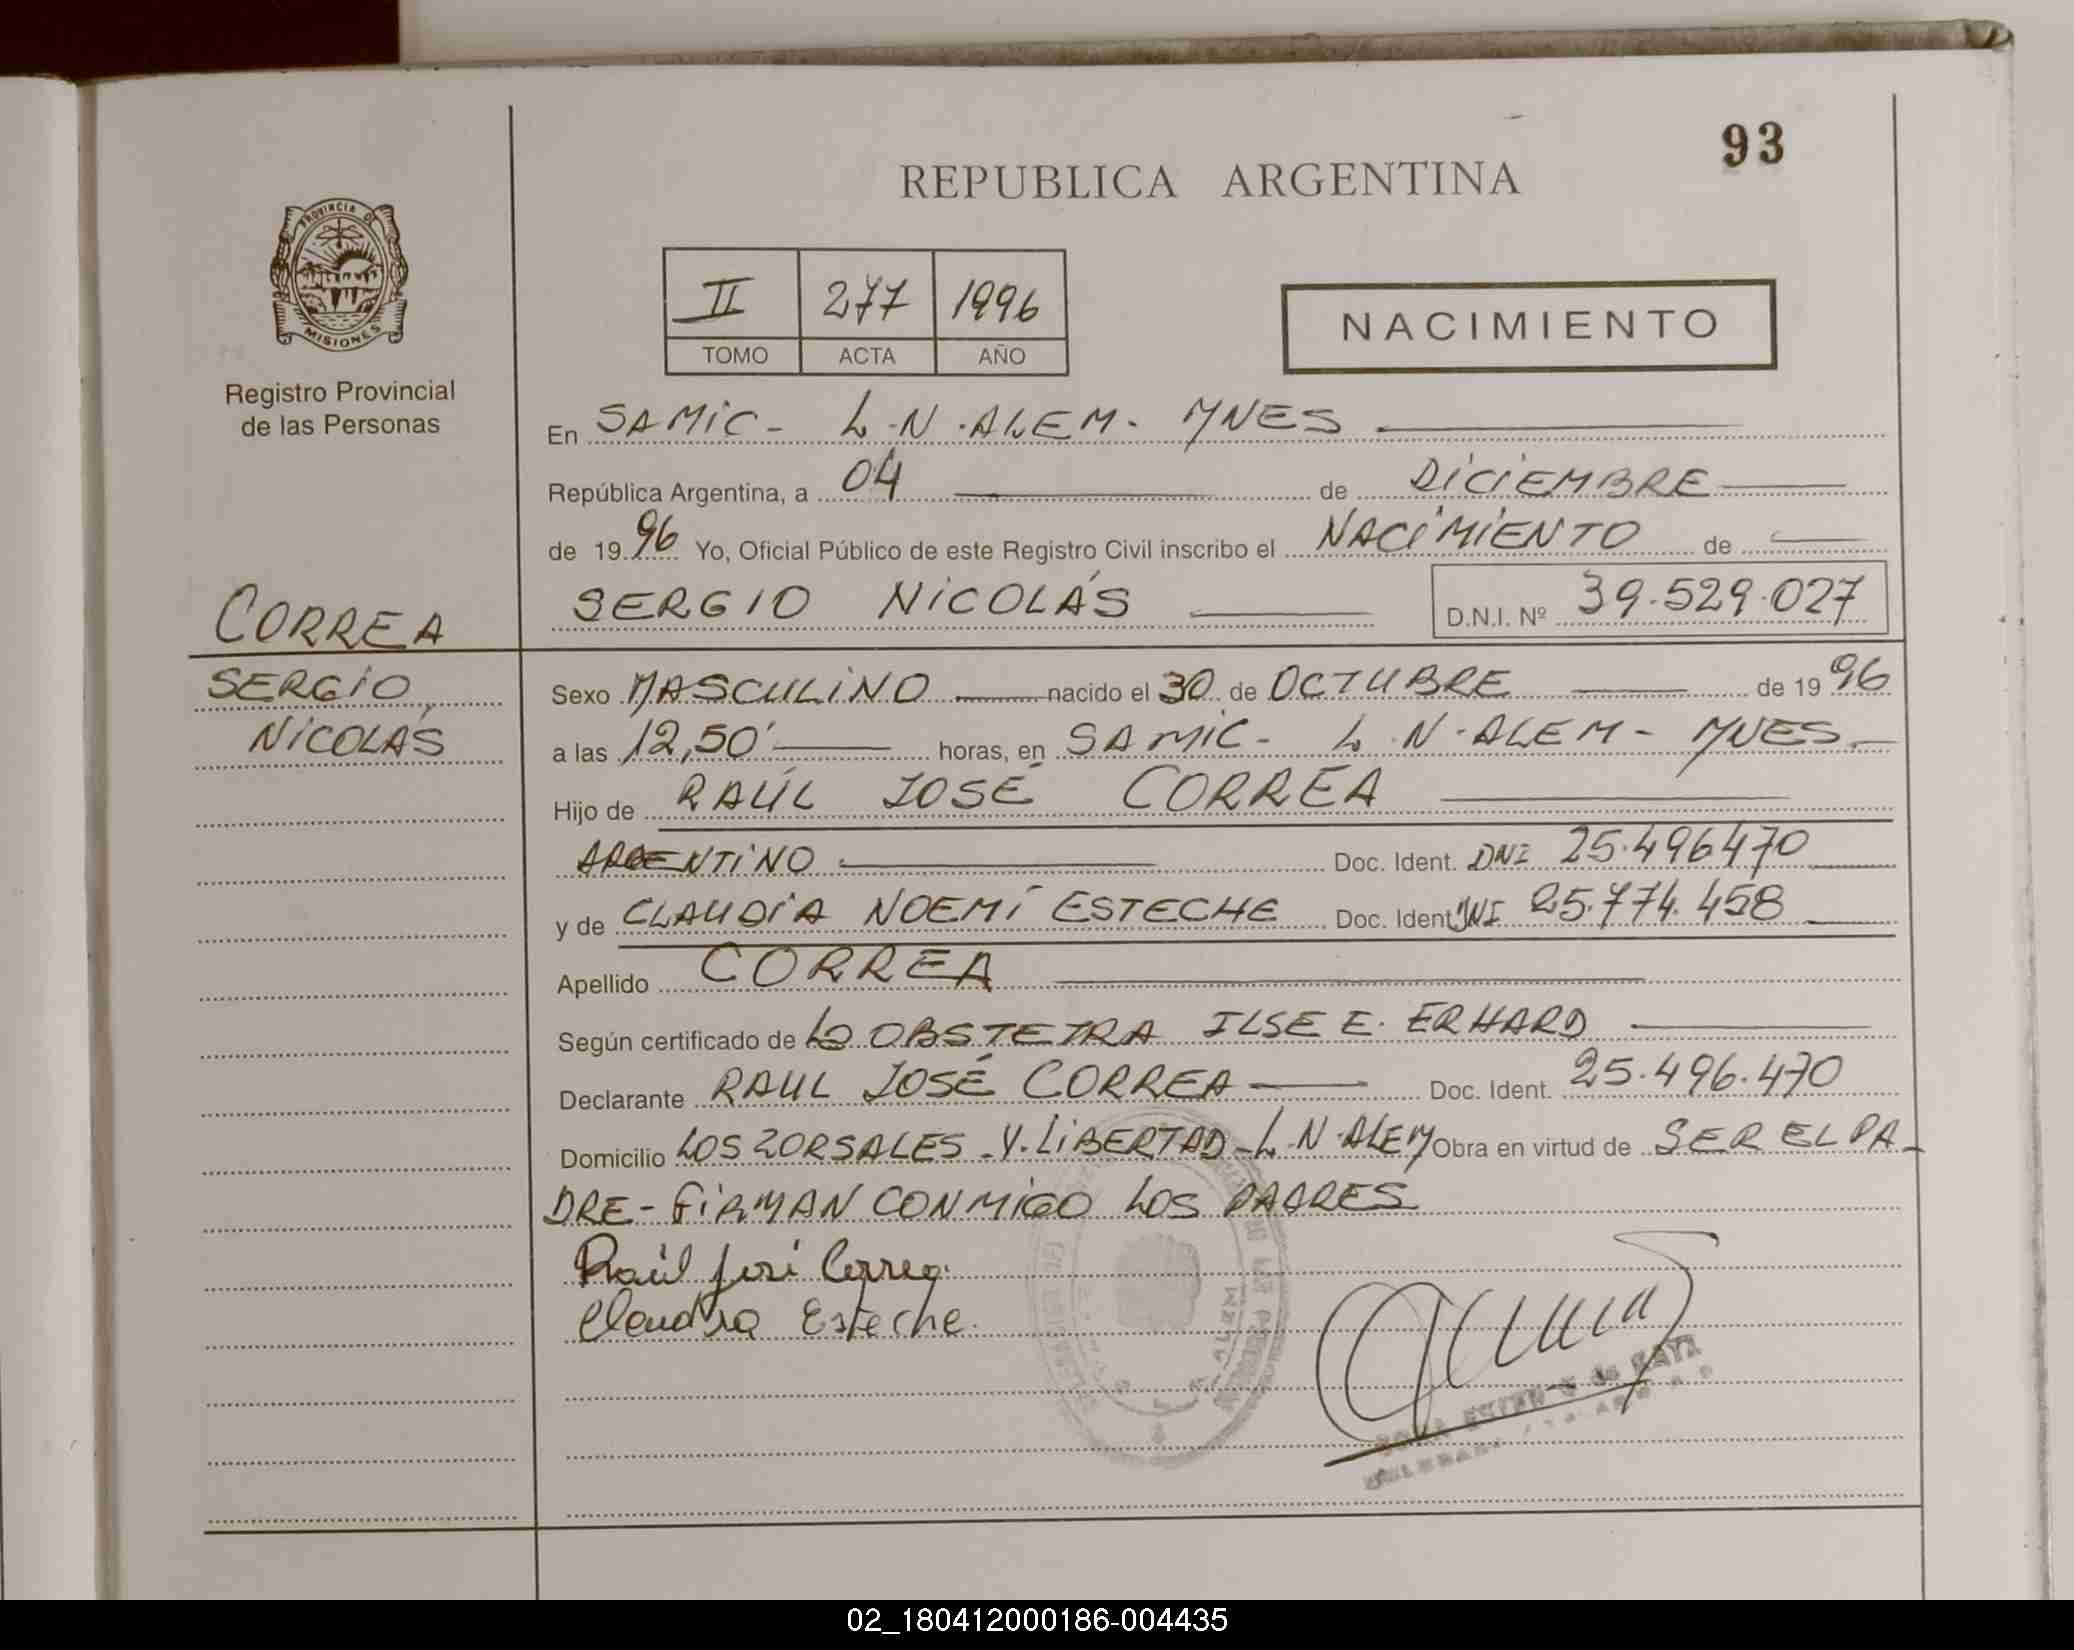 93
REPUBLICA ARGENTINA
PROVINCIA DE
MISIONES
Registro Provincial
de las Personas
II 277 1996
TOMO ACTA AÑO
NACIMIENTO
En SAMIC - L.N.ALEM - MNES
República Argentina, a 04 de DICIEMBRE
de 1996 Yo, Oficial Público de este Registro Civil inscribo el NACIMIENTO de
SERGIO NICOLÁS D.N.I. Nº 39.529.027
CORREA
SERGIO
NICOLÁS
Sexo MASCULINO nacido el 30 de OCTUBRE de 1996
a las 12,50' horas, en SAMIC - L.N.ALEM - MNES
Hijo de RAÚL JOSÉ CORREA
ARGENTINO Doc. Ident. DNI 25.496470
y de CLAUDIA NOEMÍ ESTECHE Doc. Ident. DNI 25.774.458
Apellido CORREA
Según certificado de LA OBSTETRA ILSE E. ERHARD
Declarante RAUL JOSÉ CORREA Doc. Ident. 25.496.470
Domicilio LOS ZORSALES - Y. LIBERTAD - L.N.ALEM Obra en virtud de SER EL PA-
DRE - FIRMAN CONMIGO LOS PADRES
Raúl José Correa.
Claudia Esteche.
02_180412000186-004435